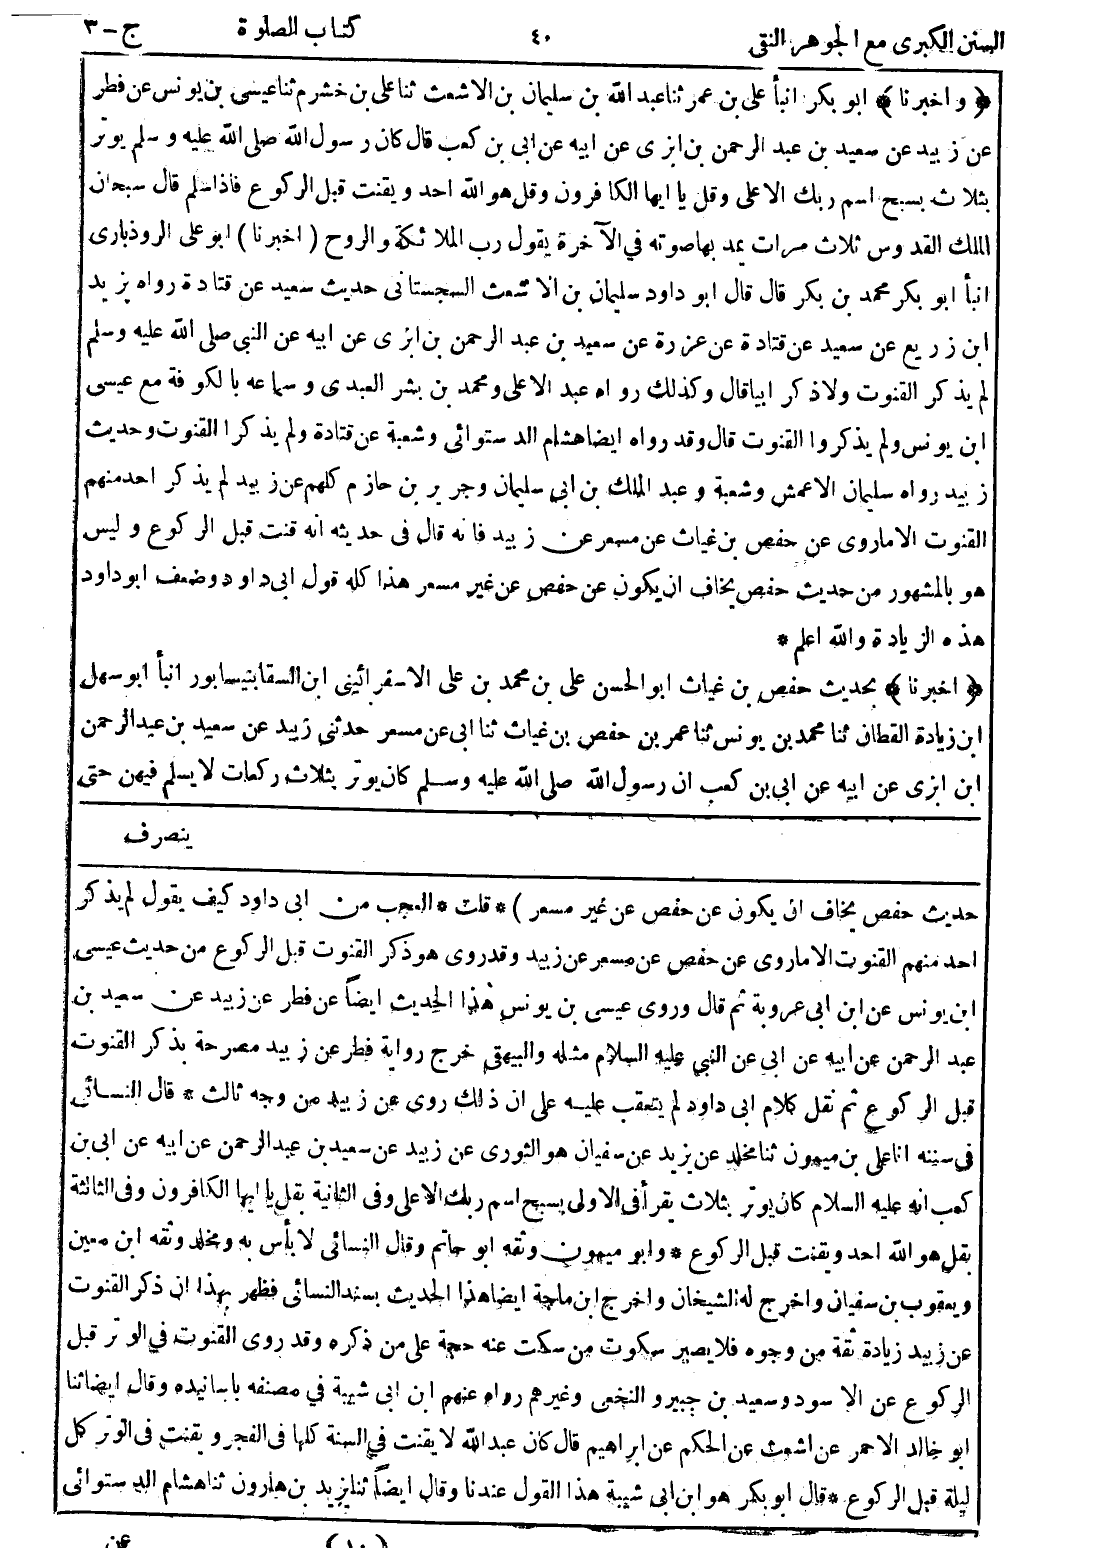 السنن الكبرى مع الجوهر النقى ٤٠ كتاب الصلوة ج-٣
﴿ و اخبرنا ﴾ ابو بكر انبأ على بن عمر ثنا عبد الله بن سليمان بن الاشعث ثنا على بن خشرم ثنا عيسى بن يونس عن فطر
عن زبيد عن سعيد بن عبد الرحمن بن ابزى عن ابيه عن ابى بن كعب قال كان رسول الله صلى الله عليه و سلم يوتر
بثلاث بسبح اسم ربك الاعلى وقل يا ايها الكافرون وقل هو الله احد و يقنت قبل الركوع فاذا سلم قال سبحان
الملك القدوس ثلاث مرات يمد بها صوته فى الآخرة يقول رب الملائكة والروح ( اخبرنا ) ابو على الروذبارى
انبأ ابو بكر محمد بن بكر قال قال ابو داود سليمان بن الاشعث السجستانى حديث سعيد عن قتادة رواه يزيد
ابن زريع عن سعيد عن قتادة عن عزرة عن سعيد بن عبد الرحمن بن ابزى عن ابيه عن النبى صلى الله عليه وسلم
لم يذكر القنوت ولا ذكر ابيا قال وكذلك رواه عبد الاعلى ومحمد بن بشر العبدى و سماعه بالكوفة مع عيسى
ابن يونس ولم يذكروا القنوت قال وقد رواه ايضا هشام الدستوائى وشعبة عن قتادة ولم يذكرا القنوت وحديث
زبيد رواه سليمان الاعمش وشعبة و عبد الملك بن ابى سليمان وجرير بن حازم كلهم عن زبيد لم يذكر احد منهم
القنوت الا ماروى عن حفص بن غياث عن مسعر عن زبيد فانه قال فى حديثه انه قنت قبل الركوع و ليس
هو بالمشهور من حديث حفص يخاف ان يكون عن حفص عن غير مسعر هذا كله قول ابى داود وضعف ابو داود
هذه الزيادة والله اعلم *
﴿ اخبرنا ﴾ بحديث حفص بن غياث ابو الحسن على بن محمد بن على الاسفرائينى ابن السقا بنيسابور انبأ ابو سهل
ابن زيادة القطان ثنا محمد بن يونس ثنا عمر بن حفص بن غياث ثنا ابى عن مسعر حدثنى زبيد عن سعيد بن عبد الرحمن
ابن ابزى عن ابيه عن ابى بن كعب ان رسول الله صلى الله عليه وسلم كان يوتر بثلاث ركعات لا يسلم فيهن حتى
ينصرف
حديث حفص يخاف ان يكون عن حفص عن غير مسعر ) * قلت * العجب من ابى داود كيف يقول لم يذكر
احد منهم القنوت الا ماروى عن حفص عن مسعر عن زبيد وقد روى هو ذكر القنوت قبل الركوع من حديث عيسى
ابن يونس عن ابن ابى عروبة ثم قال وروى عيسى بن يونس هذا الحديث ايضاً عن فطر عن زبيد عن سعيد بن
عبد الرحمن عن ابيه عن ابى عن النبى عليه السلام مثله والبيهقى خرج رواية فطر عن زبيد مصرحة بذكر القنوت
قبل الركوع ثم نقل كلام ابى داود لم يتعقب عليه على ان ذلك روى عن زبيد من وجه ثالث * قال النسائى
فى سننه انا على بن ميمون ثنا مخلد عن يزيد عن سفيان هو الثورى عن زبيد عن سعيد بن عبد الرحمن عن ابيه عن ابى بن
كعب انه عليه السلام كان يوتر بثلاث يقرأ فى الاولى بسبح اسم ربك الاعلى وفى الثانية بقل يا ايها الكافرون وفى الثالثة
بقل هو الله احد ويقنت قبل الركوع * وابو ميمون وثقه ابو حاتم وقال النسائى لا بأس به ومخلد وثقه ابن معين
ويعقوب بن سفيان واخرج له الشيخان واخرج ابن ماجة ايضا هذا الحديث بسند النسائى فظهر بهذا ان ذكر القنوت
عن زبيد زيادة ثقة من وجوه فلا يصير سكوت من سكت عنه حجة على من ذكره وقد روى القنوت فى الوتر قبل
الركوع عن الاسود وسعيد بن جبير و النخعى وغيرهم رواه عنهم ابن ابى شيبة فى مصنفه باسانيده وقال ايضا ثنا
ابو خالد الاحمر عن اشعث عن الحكم عن ابراهيم قال كان عبد الله لا يقنت فى السنة كلها فى الفجر و يقنت فى الوتر كل
ليلة قبل الركوع * قال ابو بكر هو ابن ابى شيبة هذا القول عندنا وقال ايضاً ثنا يزيد بن هارون ثنا هشام الدستوائى
(١٠) عن